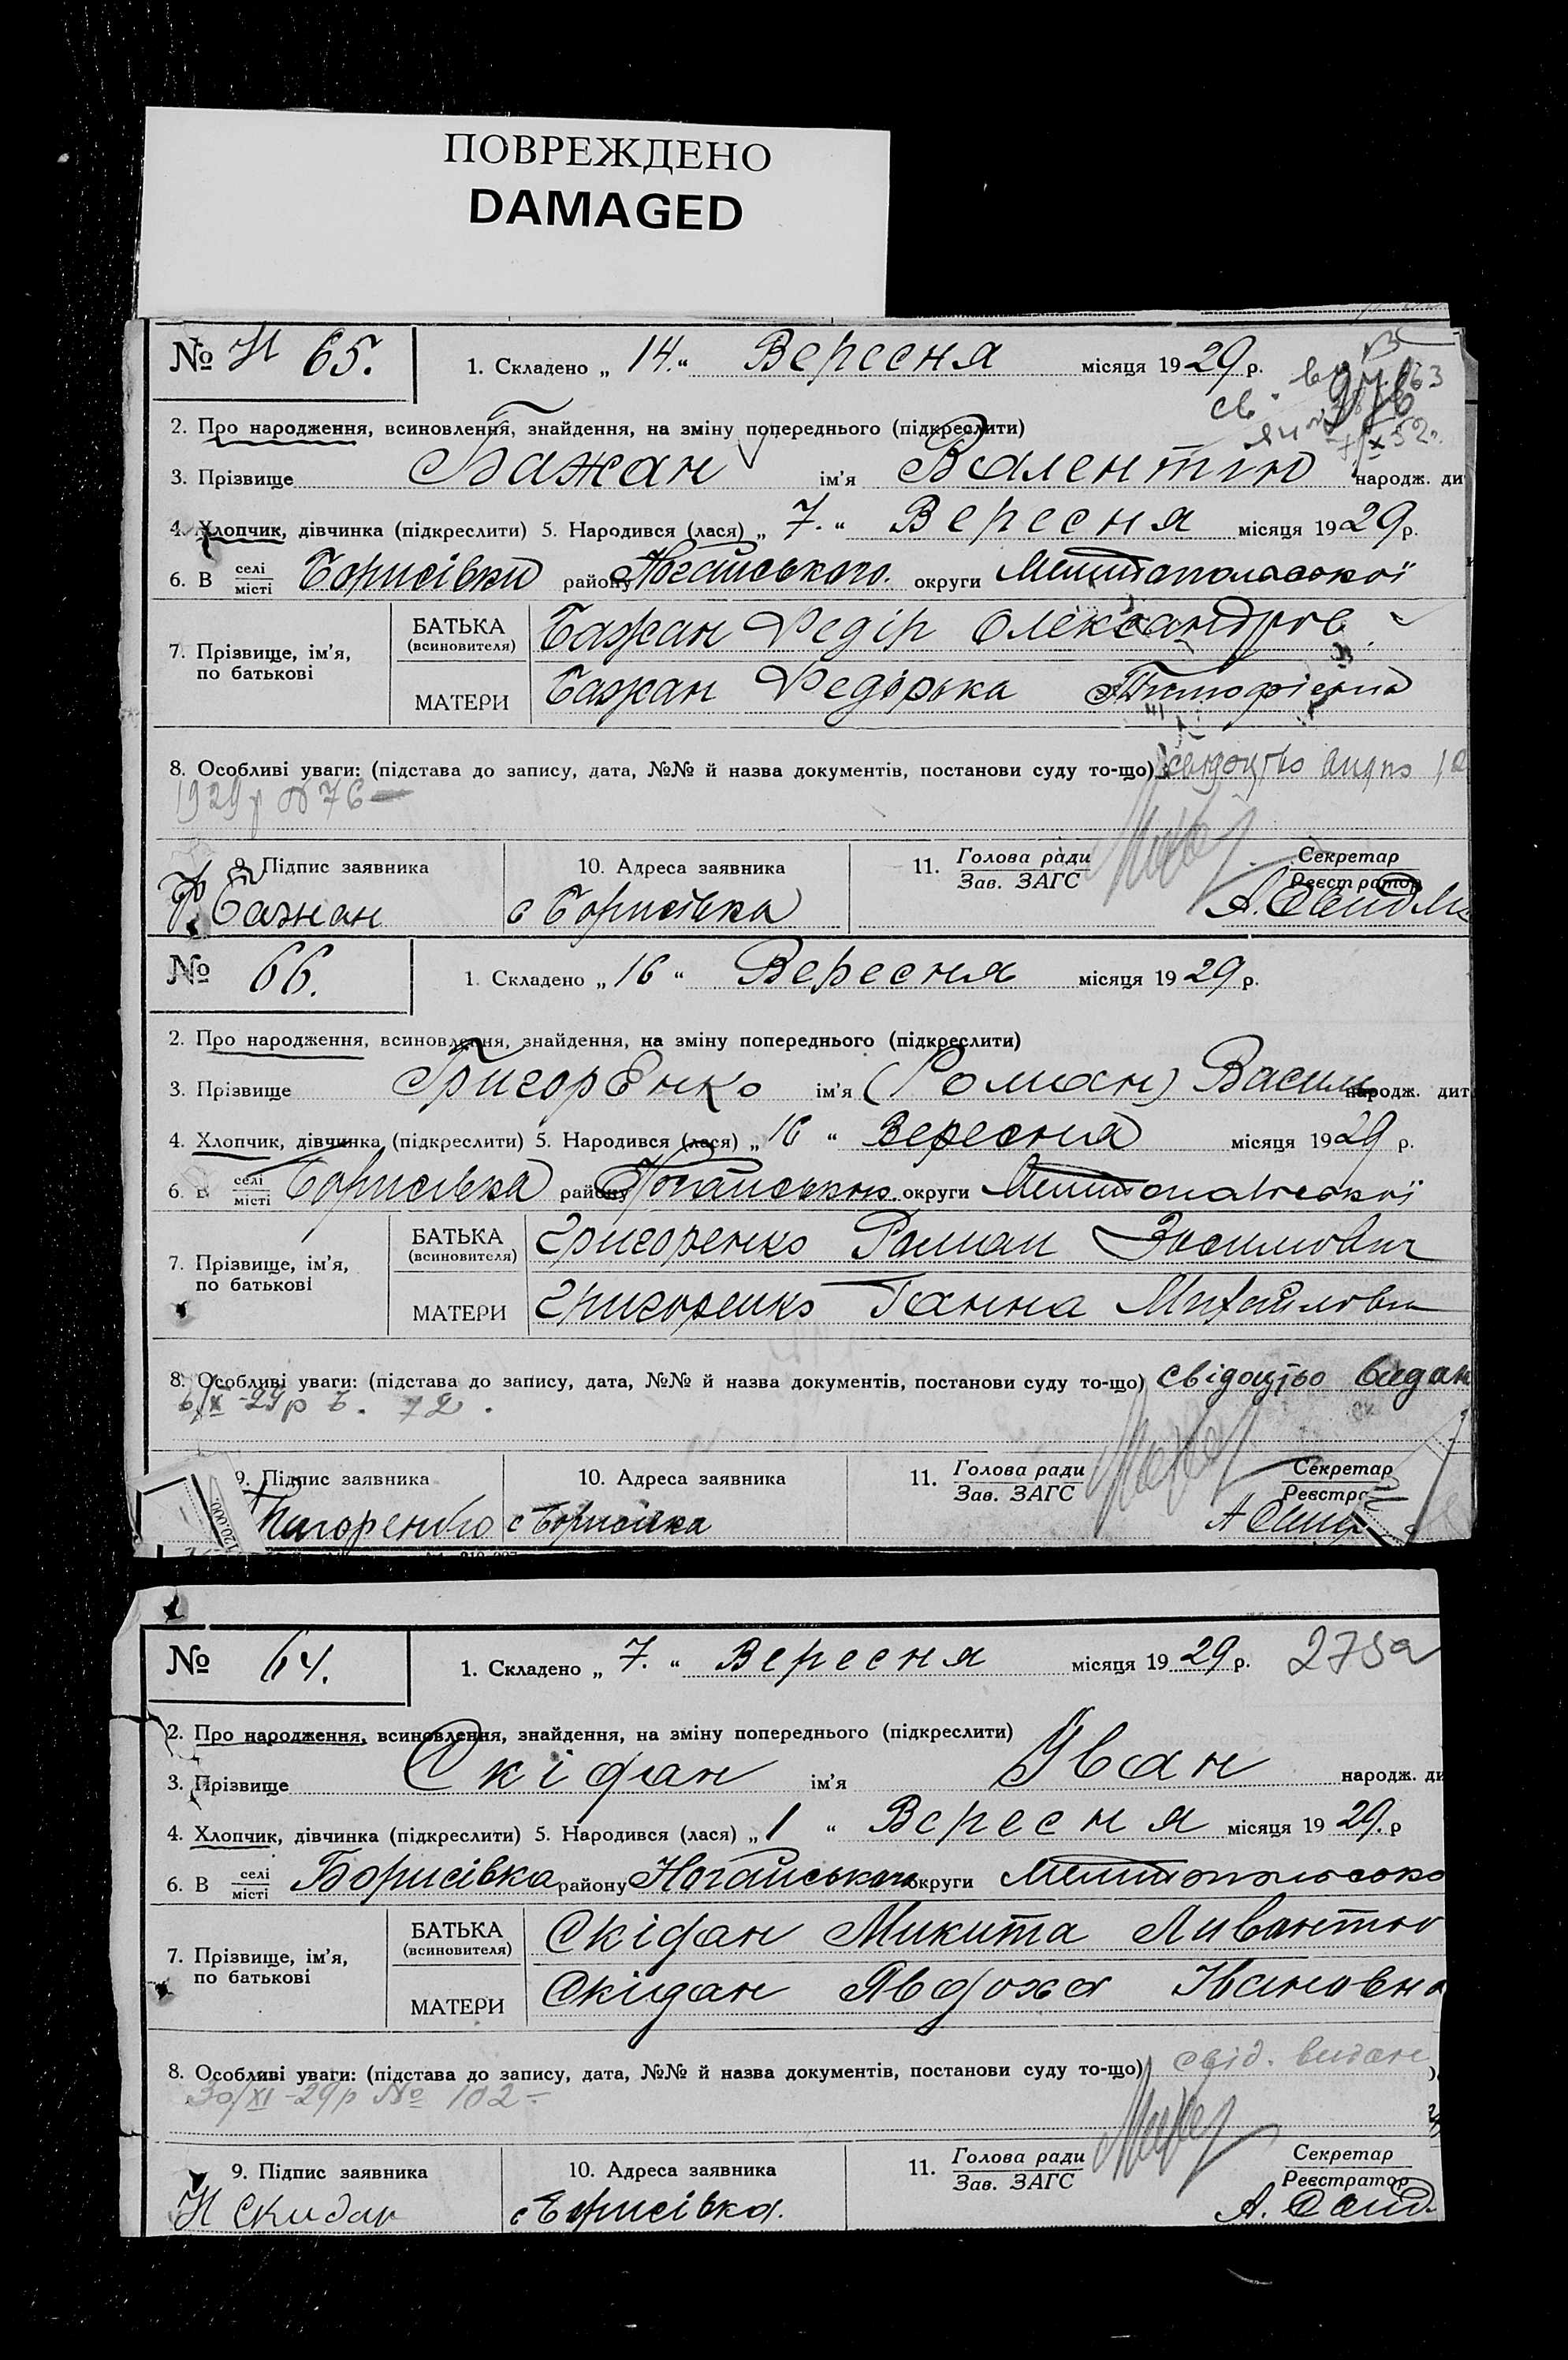 ПОВРЕЖДЕНО
DAMAGED
№ 65. 1. Складено „ 14 “ Вересня місяця 1929 р.
2. Про народження, всиновлення, знайдення, на зміну попереднього (підкреслити)
3. Прізвище Бажан ім’я Валентин народж. ди
4. Хлопчик, дівчинка (підкреслити) 5. Народився (лася) „ 7. “ Вересня місяця 1929 р.
6. В селі місті Борисівки району Ногайського округи Мелитопольської
7. Прізвище, ім’я, по батькові БАТЬКА (всиновителя) Бажан Федір Олександров.
МАТЕРИ Бажан Федірька
8. Особливі уваги: (підстава до запису, дата, №№ й назва документів, постанови суду то-що)
1929 р 76
9. Підпис заявника 10. Адреса заявника 11. Голова ради Зав. ЗАГС Секретар Реєстратор
Ф. Бажан с Борисівка
№ 66. 1. Складено „ 16 “ Вересня місяця 1929 р.
2. Про народження, всиновлення, знайдення, на зміну попереднього (підкреслити)
3. Прізвище Григоренко ім’я (Роман) Василь народж. дит
4. Хлопчик, дівчинка (підкреслити) 5. Народився (лася) „ 16 “ Вересня місяця 1929 р.
6. В селі місті Борисівка району Ногайського округи Мелитопольської
7. Прізвище, ім’я, по батькові БАТЬКА (всиновителя) Григоренко Роман Зосимович
МАТЕРИ Григоренко Ганна Михайловн
8. Особливі уваги: (підстава до запису, дата, №№ й назва документів, постанови суду то-що) свідоцтво видан
6/X-29 р 72.
9. Підпис заявника 10. Адреса заявника 11. Голова ради Зав. ЗАГС Секретар Реєстра
с Борисівка
120.000
№ 64. 1. Складено „ 7. “ Вересня місяця 1929 р.
2. Про народження, всиновлення, знайдення, на зміну попереднього (підкреслити)
3. Прізвище Скідан ім’я Иван народж. ди
4. Хлопчик, дівчинка (підкреслити) 5. Народився (лася) „ 1 “ Вересня місяця 1929. р
6. В селі місті Борисівка району Ногайського округи Мелитопольсько
7. Прізвище, ім’я, по батькові БАТЬКА (всиновителя) Скідан Микита
МАТЕРИ Скідан Явдоха Івановна
8. Особливі уваги: (підстава до запису, дата, №№ й назва документів, постанови суду то-що) свід. видане
30/XI-29 р № 102-
9. Підпис заявника 10. Адреса заявника 11. Голова ради Зав. ЗАГС Секретар Реєстратор
Н Скидан с Борисівка.